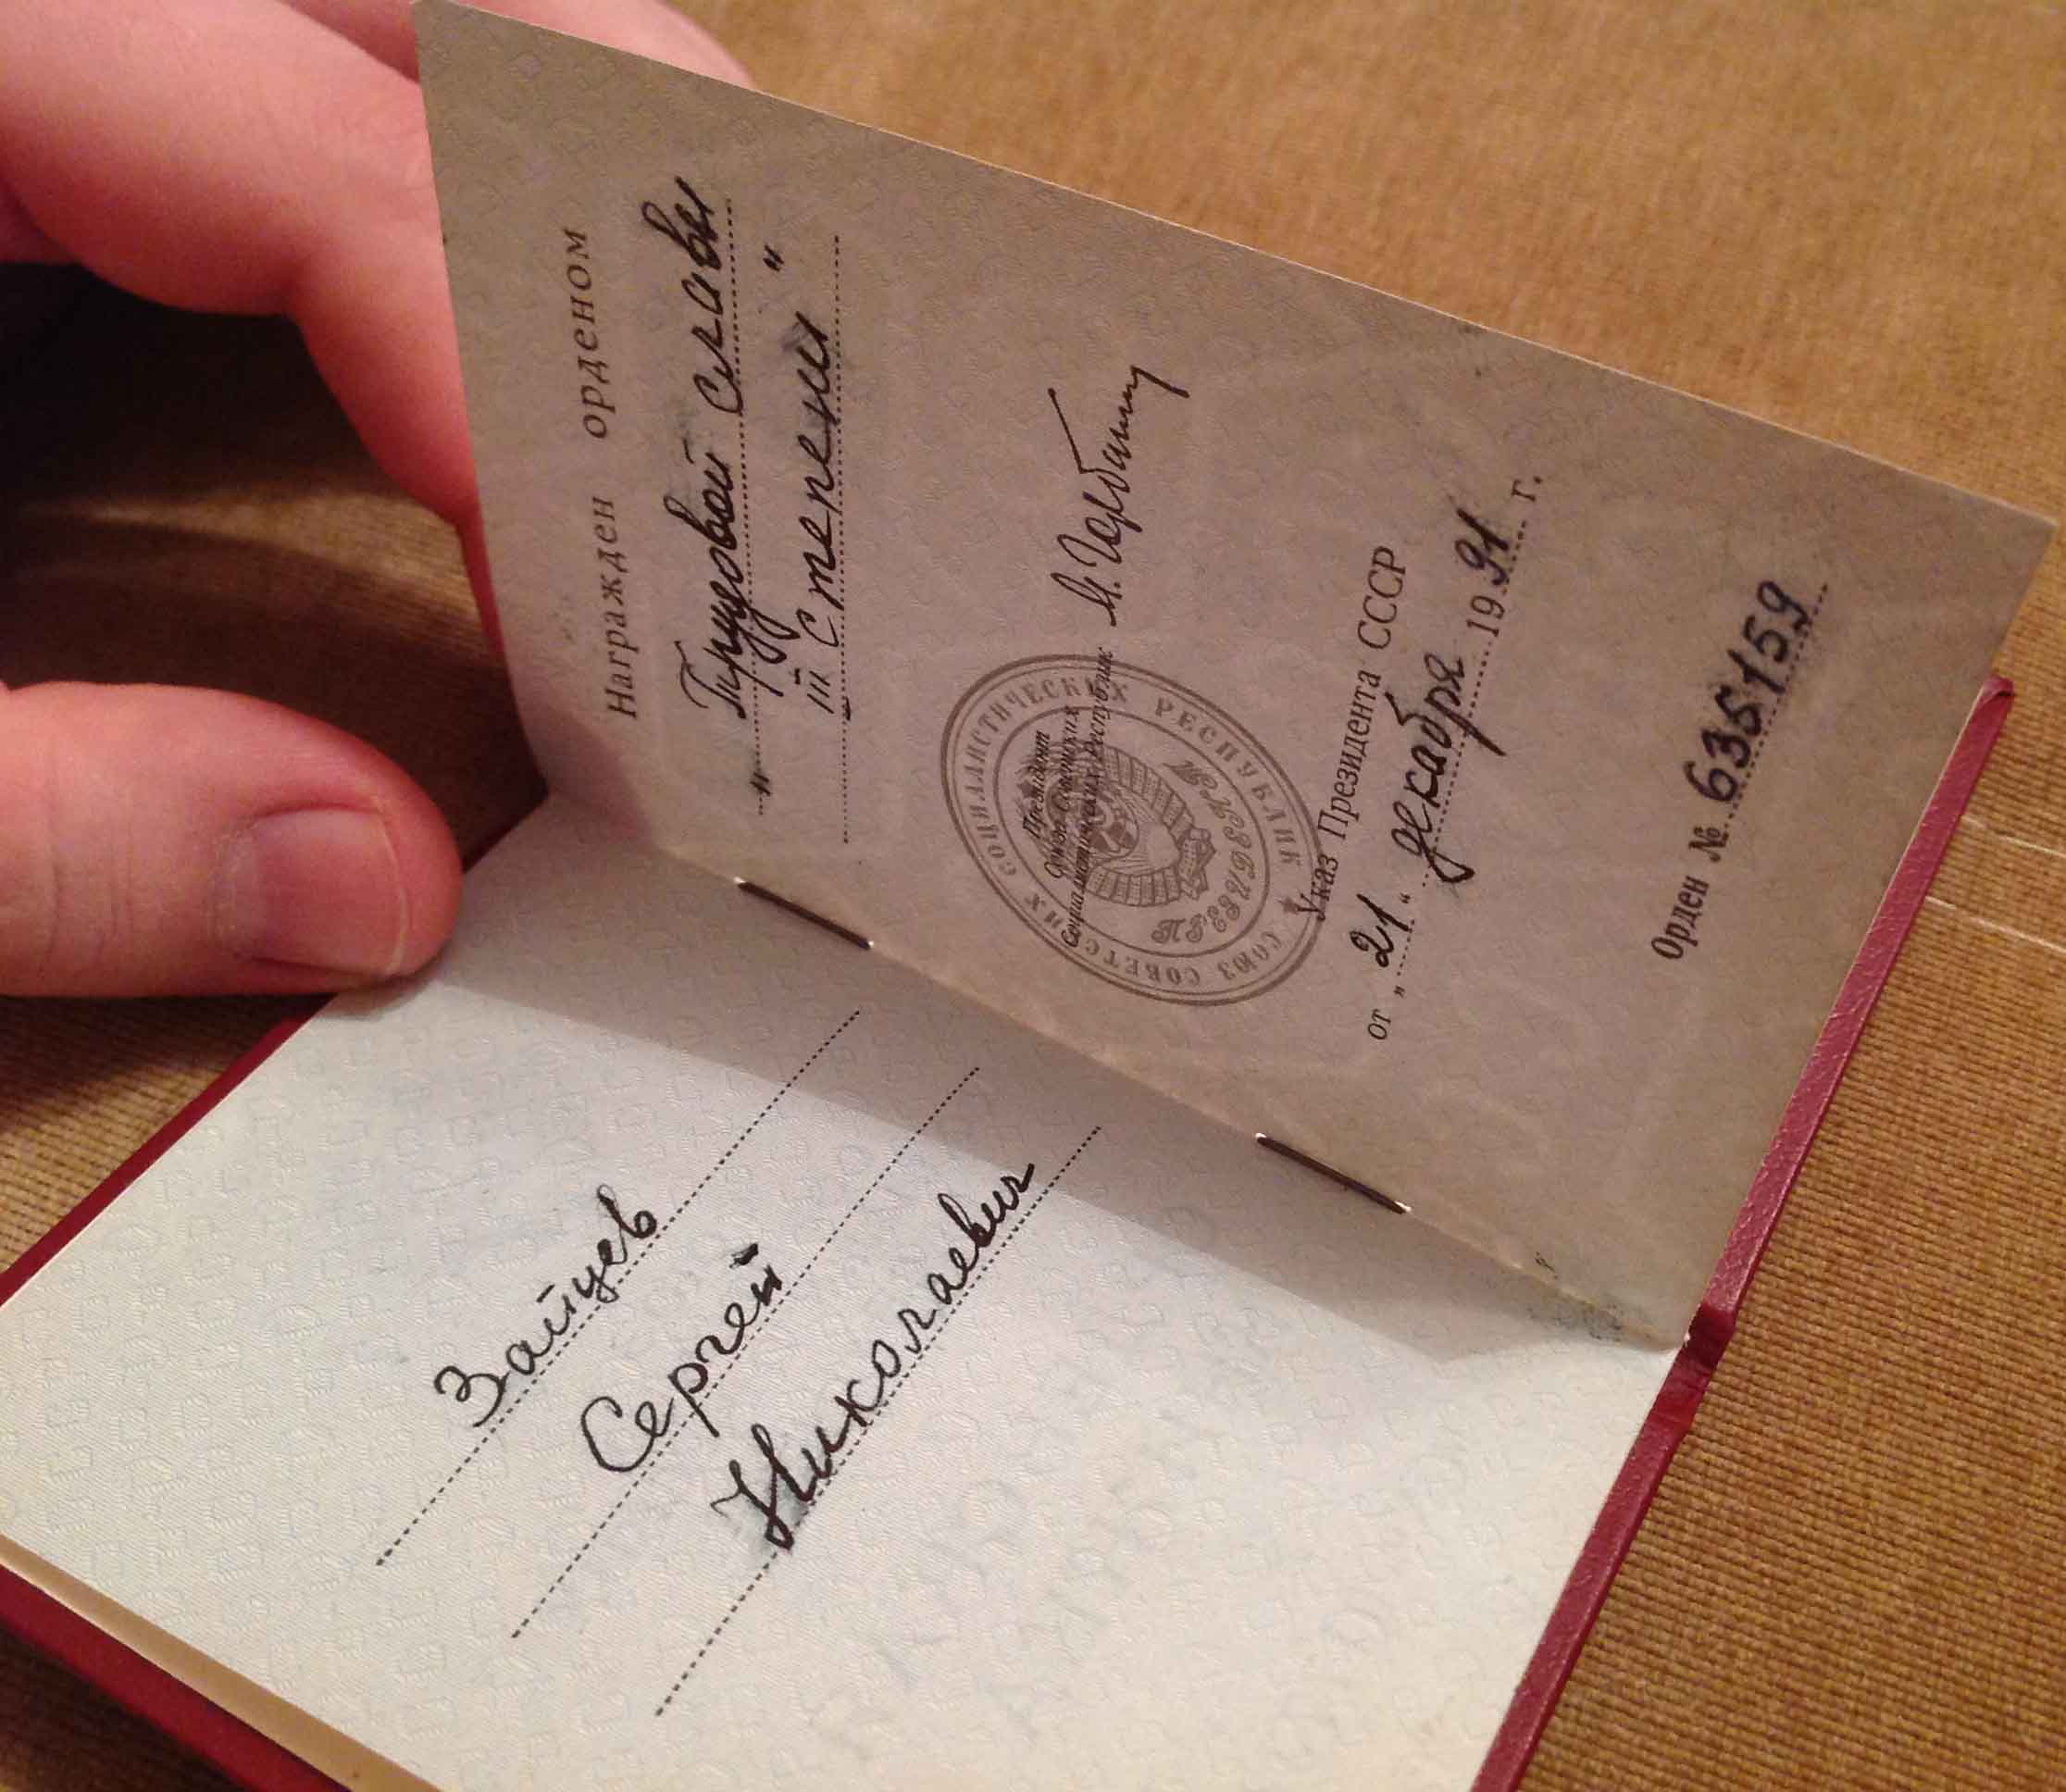 Зайцев
Сергей
Николаевич
Награжден орденом
"Трудовой Славы
III степени"
Президент
Союза Советских
Социалистических Республик
М. Горбачев
СОЮЗ СОВЕТСКИХ СОЦИАЛИСТИЧЕСКИХ РЕСПУБЛИК
ПРЕЗИДЕНТ
Указ Президента СССР
от „21“ декабря 1991 г.
Орден № 635159